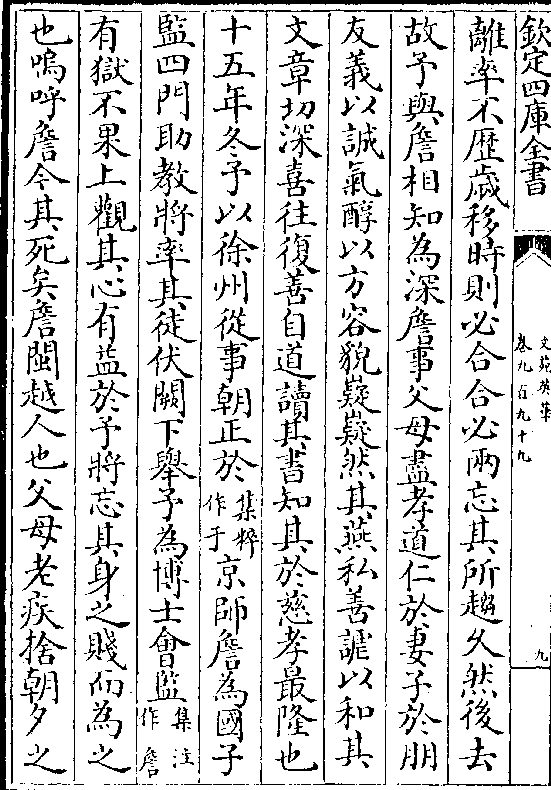 欽定四庫全書
文苑英華
卷九百九十九
九
離率不歴歲移時則必合合必兩忘其所趨久然後去
故予與詹相知為深詹事父母盡孝道仁於妻子於朋
友義以誠氣醇以方容貌嶷嶷然其燕私善謔以和其
文章切深喜往復善自道讀其書知其於慈孝最隆也
十五年冬予以徐州從事朝正於集粹作于京師詹為國子
監四門助教將率其徒伏闕下舉予為博士會監集注作詹
有獄不果上觀其心有益於予將忘其身之賤而為之
也嗚呼詹今其死矣詹閩越人也父母老疾捨朝夕之